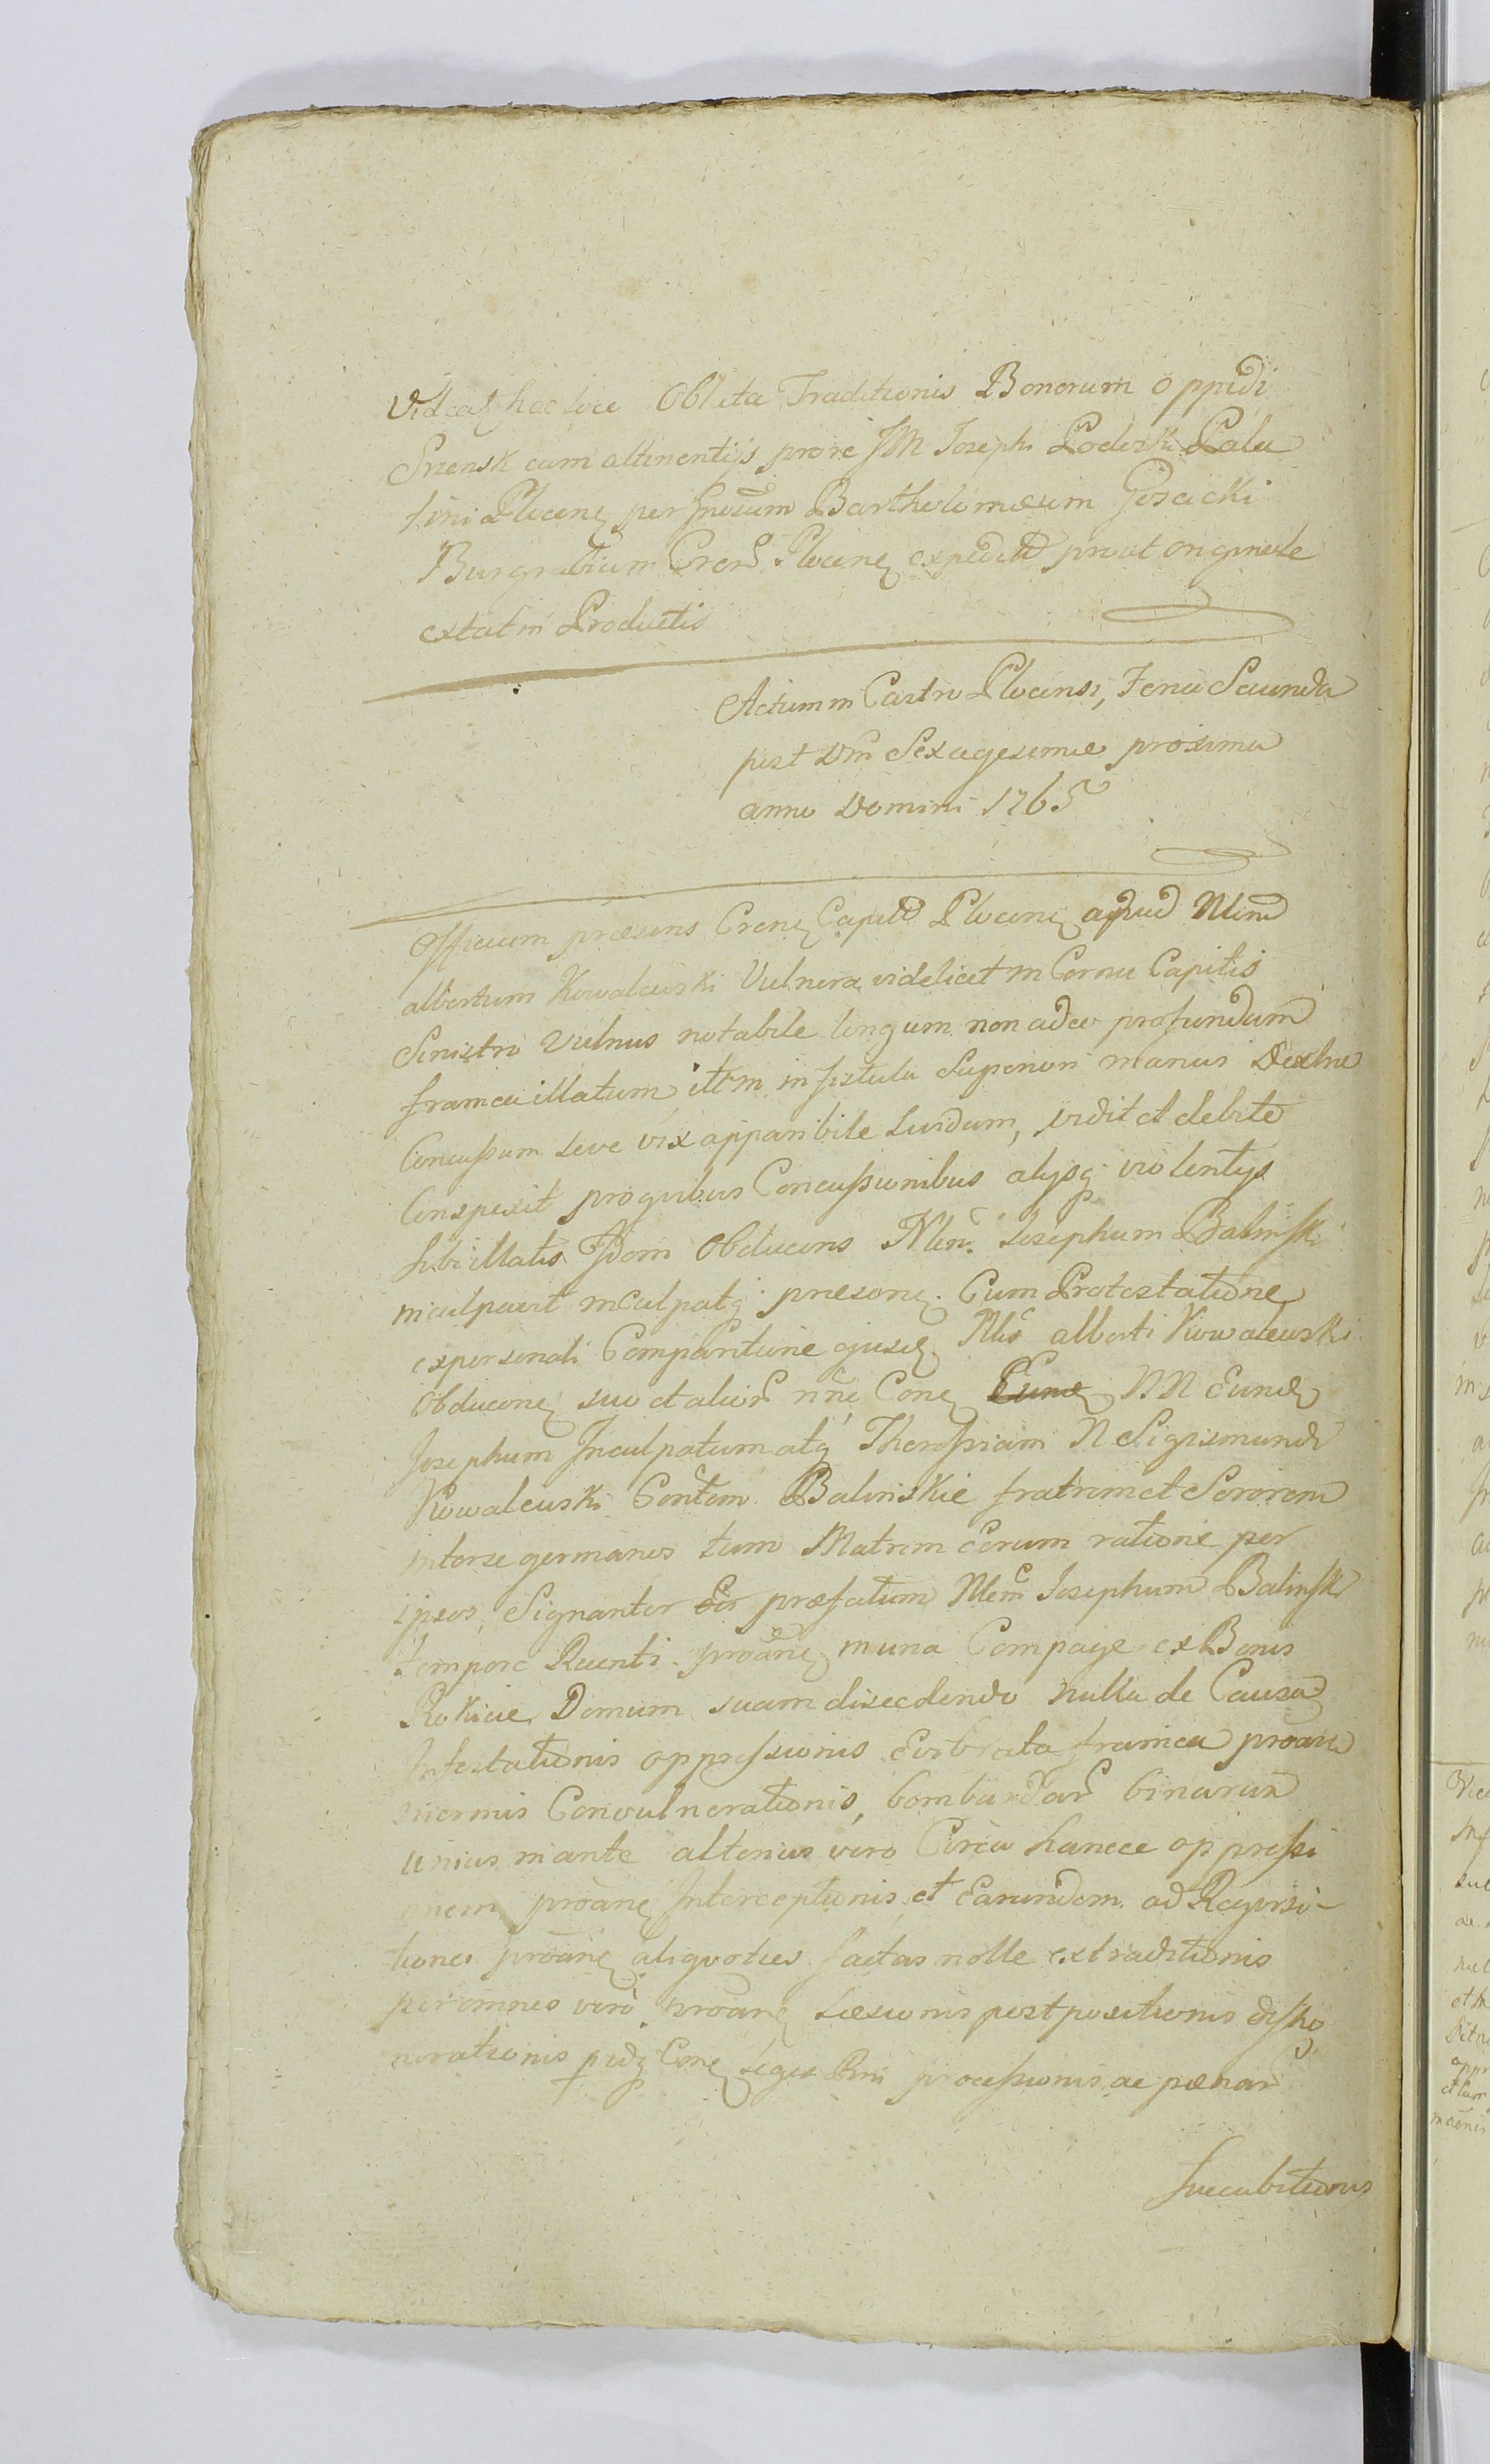 Videat hac loce Oblata Traditionis Bonorum oppidi
Srzensk cum attinentijs prore JM Joseph Podoski Pala
tini Plocen per Gnosum Bartholomæum Gosacki
Burgrabium Cren Plocen expedit prout originale
extat in Productis
Actum in Castro Plocensi, Feria Secunda
post Dm Sexagesimæ proxima
anno Domini 1765
Officium præsens Crene Capit Plocen apud Nlem
albertum Kowalewski Vulnera videlicet in Cornu Capitis
Sinistro Vulnus notabile longum non adeo profundum
framea illatum, itm in fistula Superiori manus dextræ
Concussum leve vix apparibile Lividum, vidit et debite
Conspexit pro quibus Concussionibus alysq violentys
sibi illatis Idem Obducens Nlem Josephum Balinski
inculpavit inculpatq præsen. Cum Protestatione
ex personali Comparitione ejusd Nlis alberti Kowalewski
Obducen suo et alior nne Cone Eund N.N Eund
Josephum Inculpatum atq Theressiam N Sigismundi
Kowalewski Contem Balinskie fratrem et Sororem
inter se germanos tum Matrem eorum ratione per
ipsos, Signanter præfatum Nlem Josephum Balinski
tempore Recenti proane in una Compage ex Bonis
Rokicie Domum suam discedendo nulla de Causa
Infestationis oppressionis Evibrata framea proane
inermis Convulnerationis, bombardar binarum
unius in ante alterius vero Circa hancce oppressi
onem proane Interceptionis et Earundem ad Requisi-
tiones proane aliquoties factas nolle extraditionis
per omnes vero proane Læsionis postpositionis disho
norationis pidq Cone legis Rni processionis ac pænar
Succubitionis